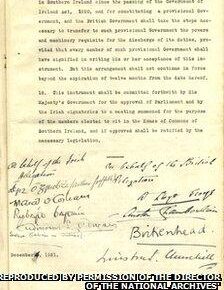 in Southern Ireland since the passing of the Government of
Ireland Act, 1920, and for constituting a provisional Government,
and the British Government shall take the steps
necessary to transfer to such provisional Government the powers
and machinery requisite for the discharge of its duties, provided
that every member of such provisional Government shall
have signified in writing his or her acceptance of this instrument.
But this arrangement shall not continue in force
beyond the expiration of twelve months from the date hereof.
18. This instrument shall be submitted forthwith by His
Majesty's Government for the approval of Parliament and by
the Irish signatories to a meeting summoned for the purpose
of the members elected to sit in the House of Commons of
Southern Ireland, and if approved shall be ratified by the
necessary legislation.
On behalf of the Irish
Delegation
On behalf of the British
Delegation
Birkenhead.
Winston S. Churchill
December 6, 1921.
REPRODUCED BY PERMISSION OF THE DIRECTOR OF
THE NATIONAL ARCHIVES